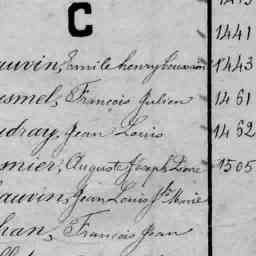 C
1441
auvin, Emile henry 1443
esmel, François Julien 1461
udray, Jean Louis 1462
smier, Auguste Joseph 1505
auvin, Jean Louis Marie
han, François Jean